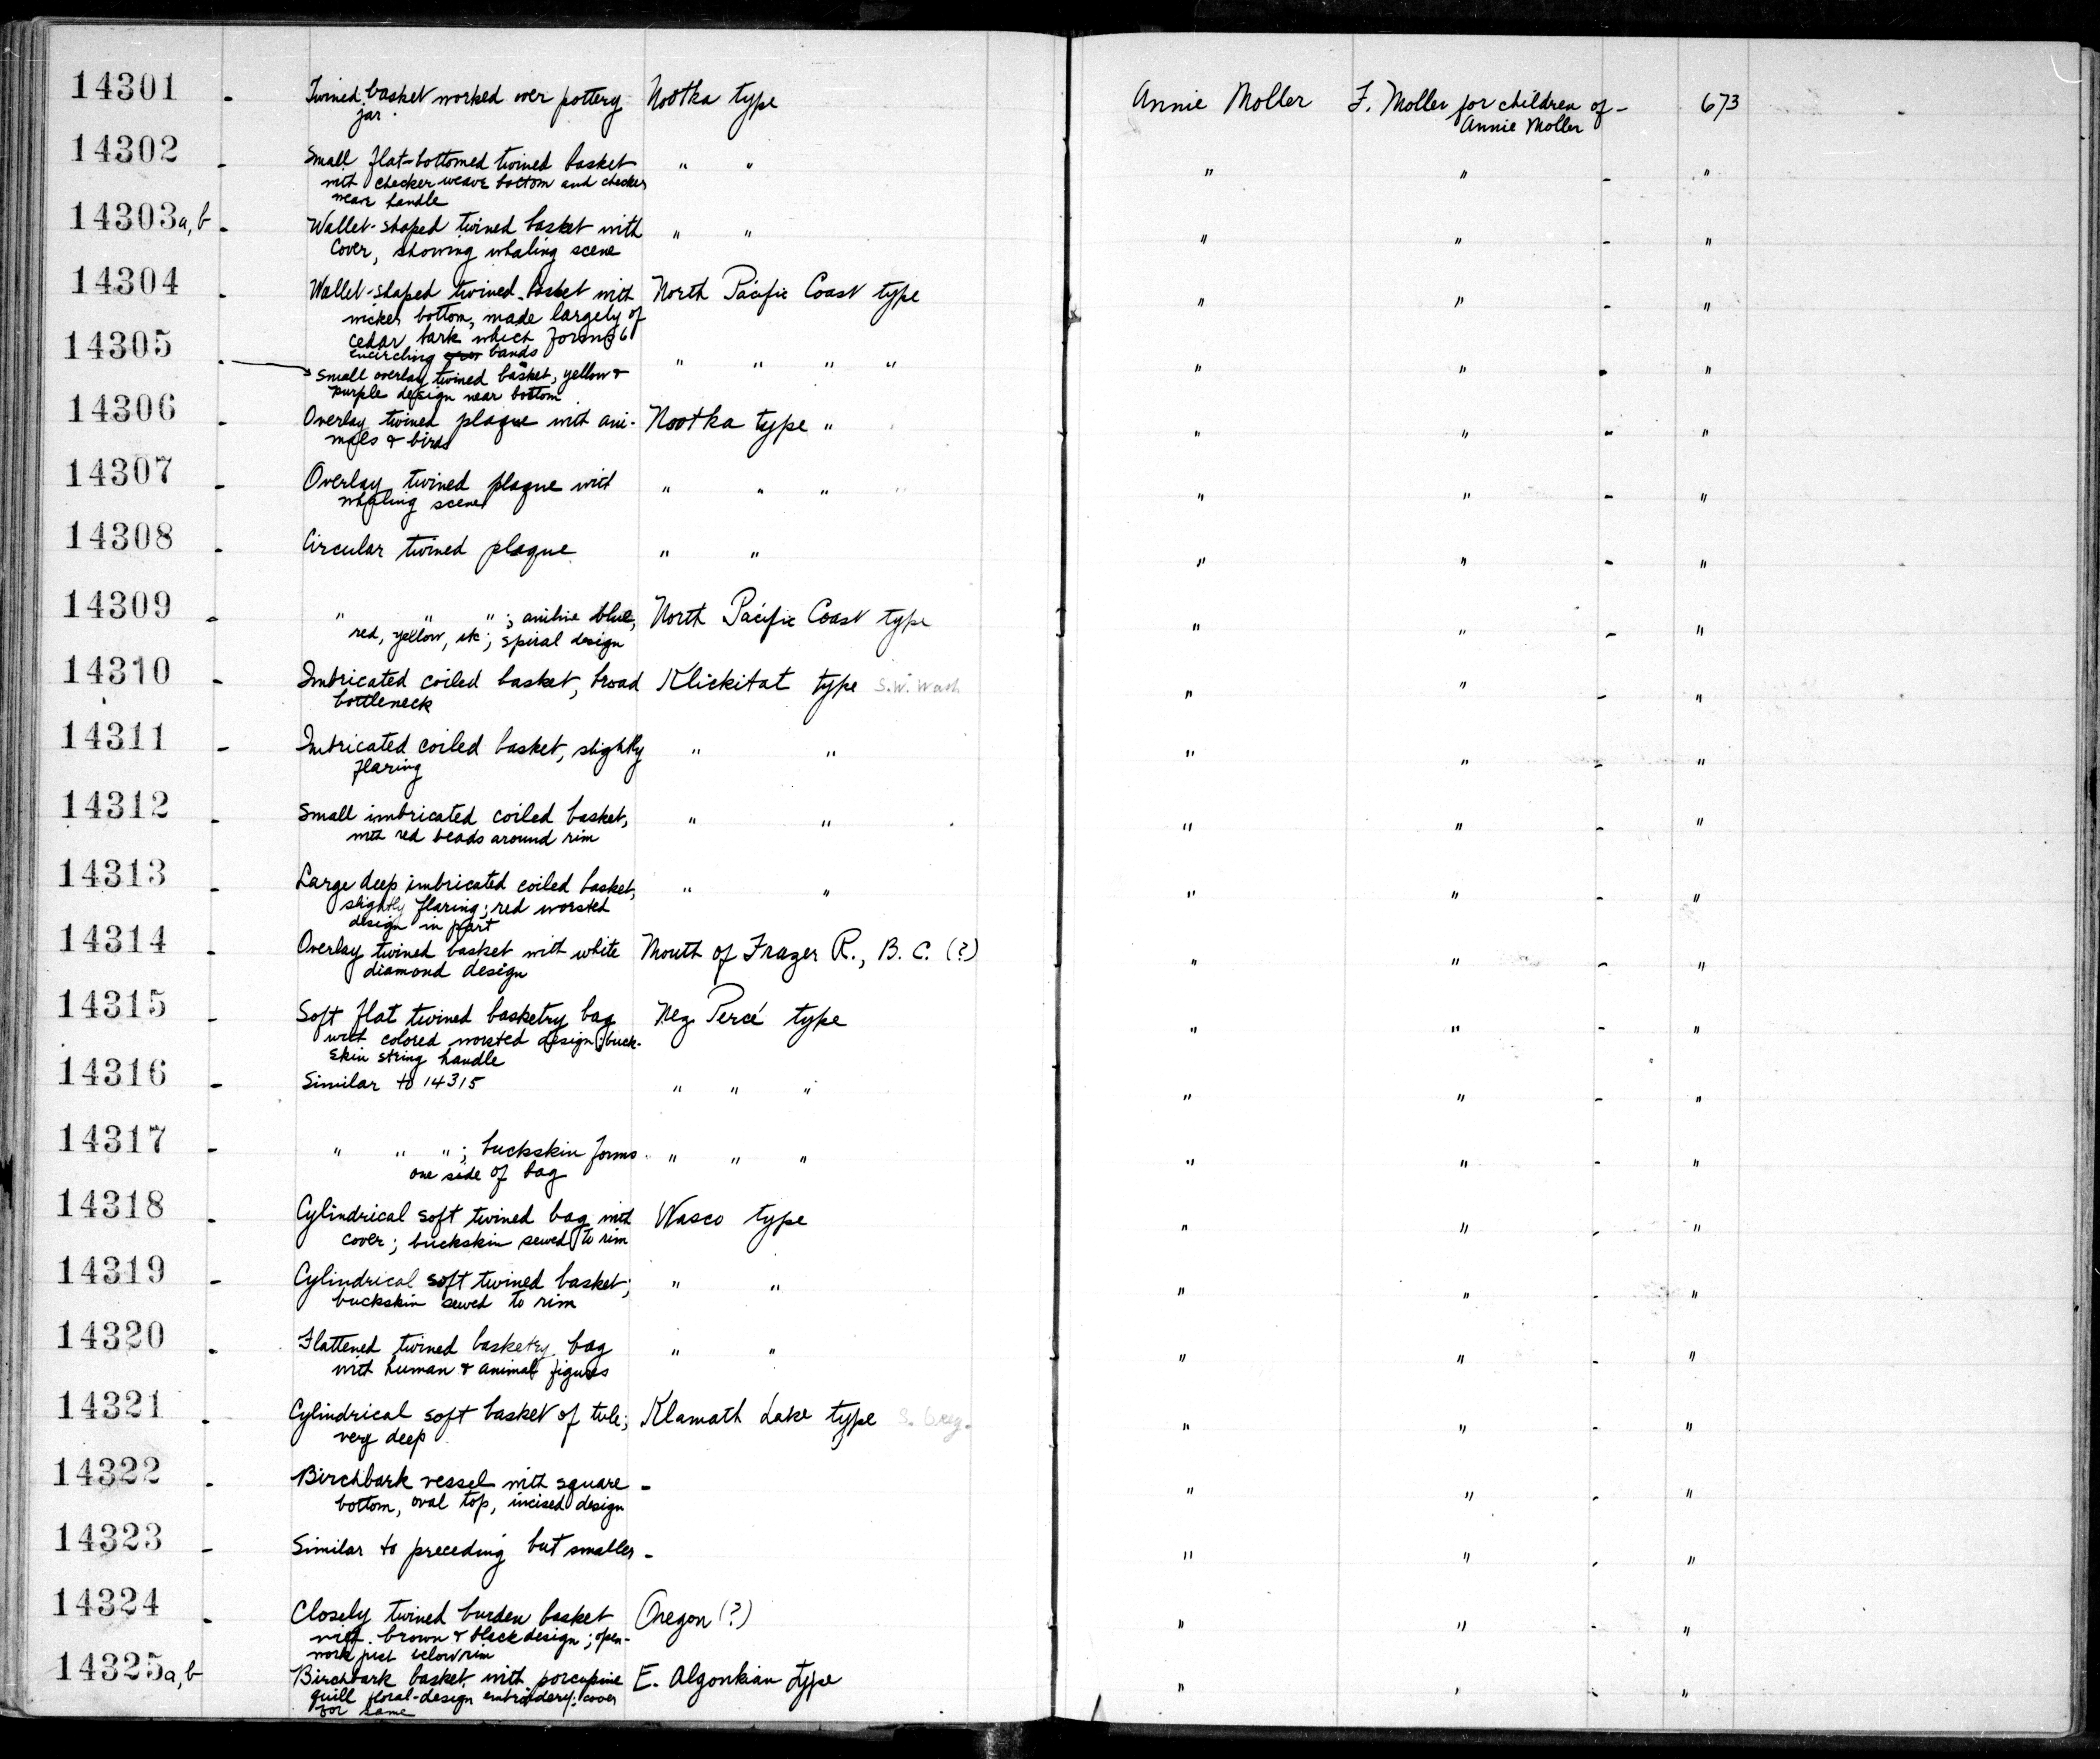 14301 - Twined basket worked over pottery Nootka type Annie Moller F. Moller for children of - 673
jar Annie Moller
14302 - Small flat-bottomed twined basket " " " " - "
with checker weave bottom and checker
near handle
14303a,b - Wallet-shaped twined basket with " " " " - "
cover, showing whaling scene
14304 - Wallet-shaped twined basket with North Pacific Coast type " " - "
wicker bottom, made largely of
cedar bark which forms 6
encircling bands
14305 - " " " " " " - "
Small overlay twined basket, yellow &
purple design near bottom
14306 - Overlay twined plaque with ani- Nootka type " " " - "
mals & birds
14307 - Overlay twined plaque with " " " " " - "
whaling scene
14308 - Circular twined plaque " " " " - "
14309 - " " "; aniline blue, North Pacific Coast type " " - "
red, yellow, etc; spiral design
14310 - Imbricated coiled basket, broad Klickitat type S.W. Wash " " - "
bottleneck
14311 - Imbricated coiled basket, slightly " " " " - "
flaring
14312 - Small imbricated coiled basket, " " " " - "
with red beads around rim
14313 - Large deep imbricated coiled basket, " " " " - "
slightly flaring; red worsted
design in part
14314 - Overlay twined basket with white Mouth of Frazer R., B. C. (?) " " - "
diamond design
14315 - Soft flat twined basketry bag Nez Percé type " " - "
with colored worsted design; buck-
skin string handle
14316 - Similar to 14315 " " " " " - "
14317 - " " "; buckskin forms " " " " " - "
one side of bag
14318 - Cylindrical soft twined bag with Wasco type " " - "
cover; buckskin sewed to rim
14319 - Cylindrical soft twined basket; " " " " - "
buckskin sewed to rim
14320 - Flattened twined basketry bag " " " " - "
with human & animal figures
14321 - Cylindrical soft basket of tule; Klamath Lake type S. Oreg. " " - "
very deep
14322 - Birchbark vessel with square - " " - "
bottom, oval top, incised design
14323 - Similar to preceding but smaller - " " - "
14324 - Closely twined burden basket Oregon (?) " " - "
with brown & black design; open-
work just below rim
14325a,b Birchbark basket with porcupine E. Algonkian type " " - "
quill floral-design embroidery; cover
for same